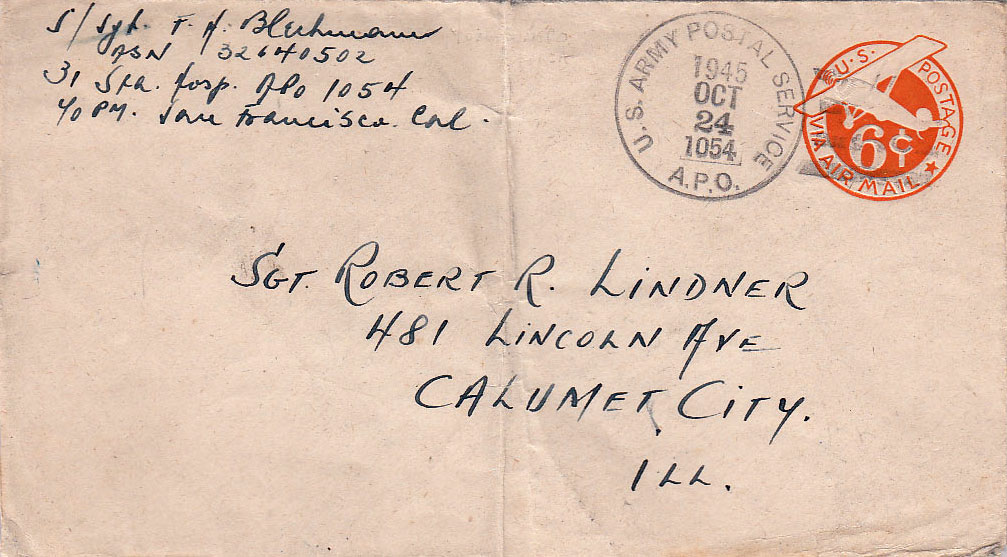 S/Sgt. F. A. Blechmann
ASN 32640502
31 Sta. Hosp. APO 1054
% PM. San Francisco. Cal.
U.S. ARMY POSTAL SERVICE
1945
OCT
24
1054
A.P.O.
U.S. POSTAGE
6¢
VIA AIR MAIL
SGT. ROBERT R. LINDNER
481 LINCOLN AVE
CALUMET CITY.
ILL.